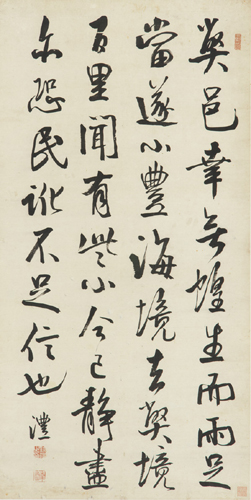 弊邑幸無蝗生而雨足
當遂小豐海境去弊境
百里聞有些小今已靜盡
亦恐民訛不足信也
澧